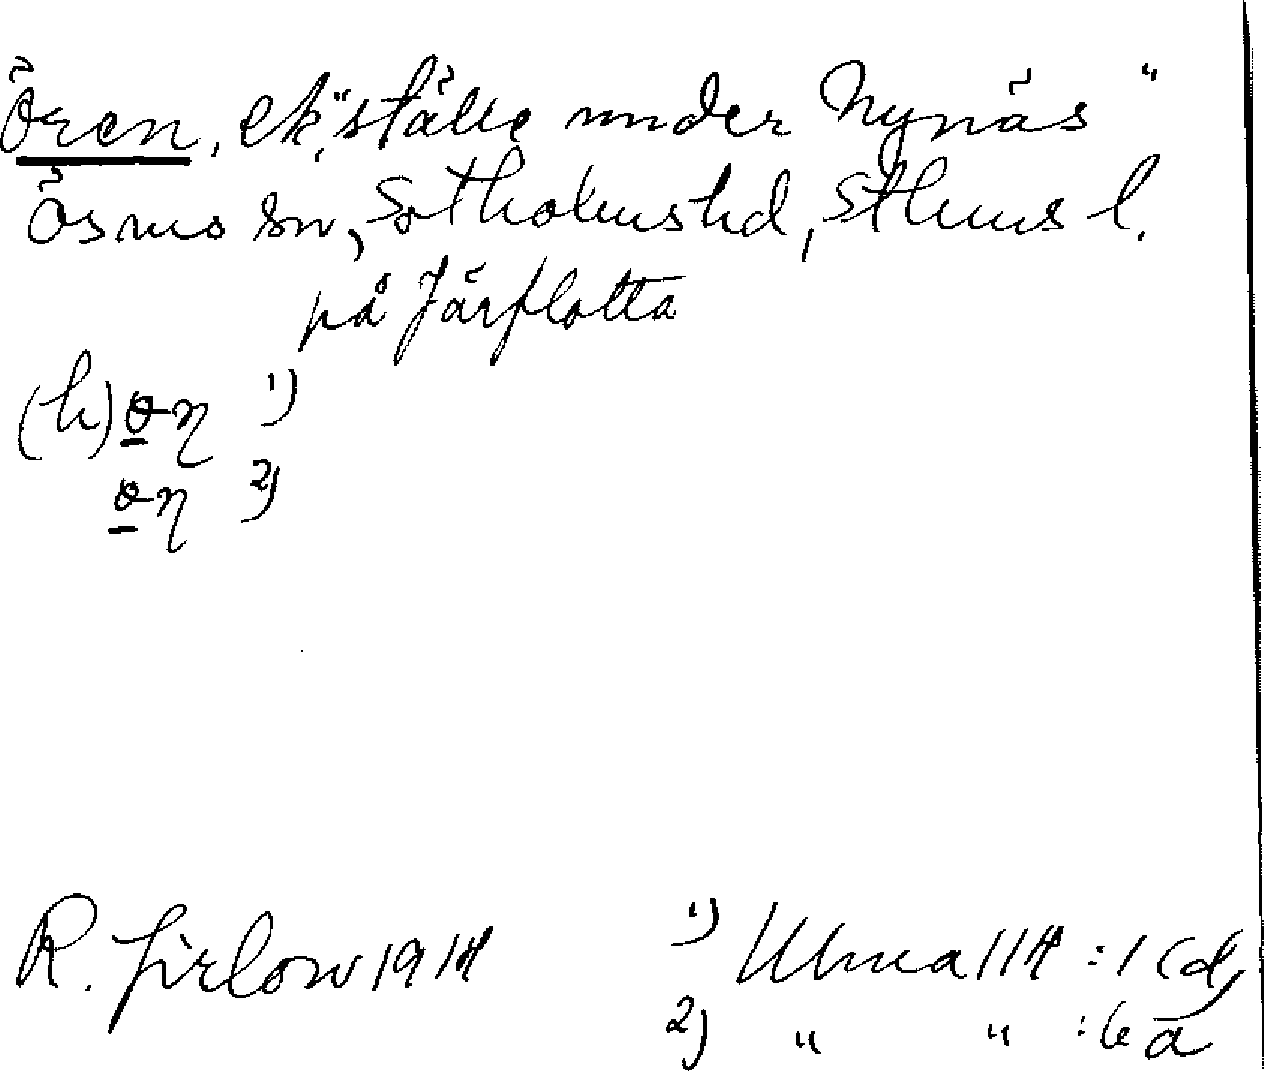 Ören, ek, "ställe under Nynäs"
Ösmo sn, Sotholms hd, Sthms l.
på Järflotta
(h) 1)
2)
R. Jirlow 1914
1) Ulma 114 : 1 Cd,
2) " " : 6 a